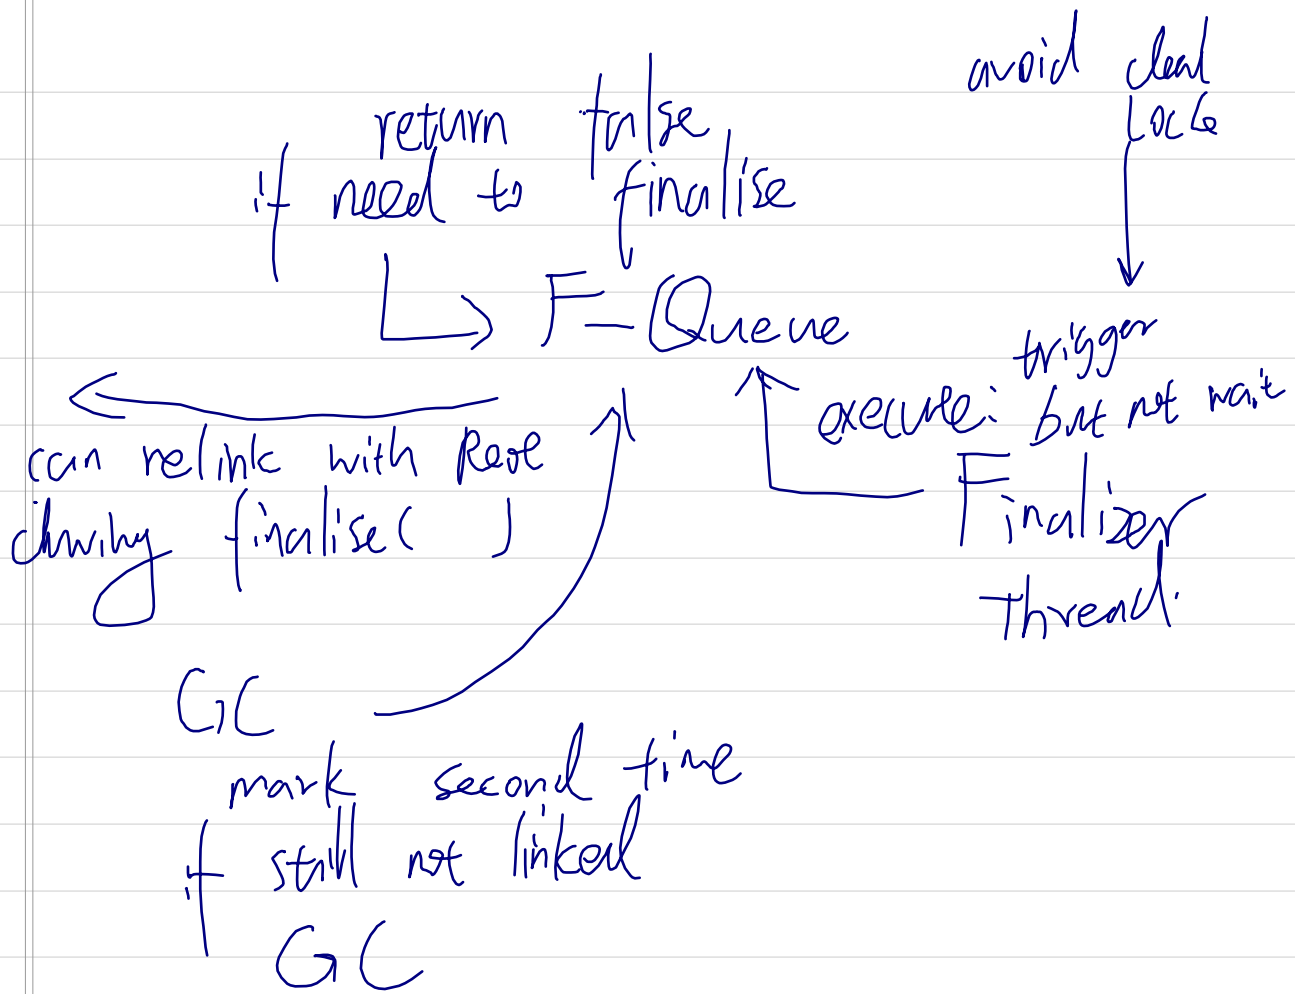 avoid dead
lock
return false
if need to finalise
F-Queue
trigger
execute: but not wait
can relink with Root
during finalise( )
Finalizer
Thread.
GC
mark second time
if still not linked
GC